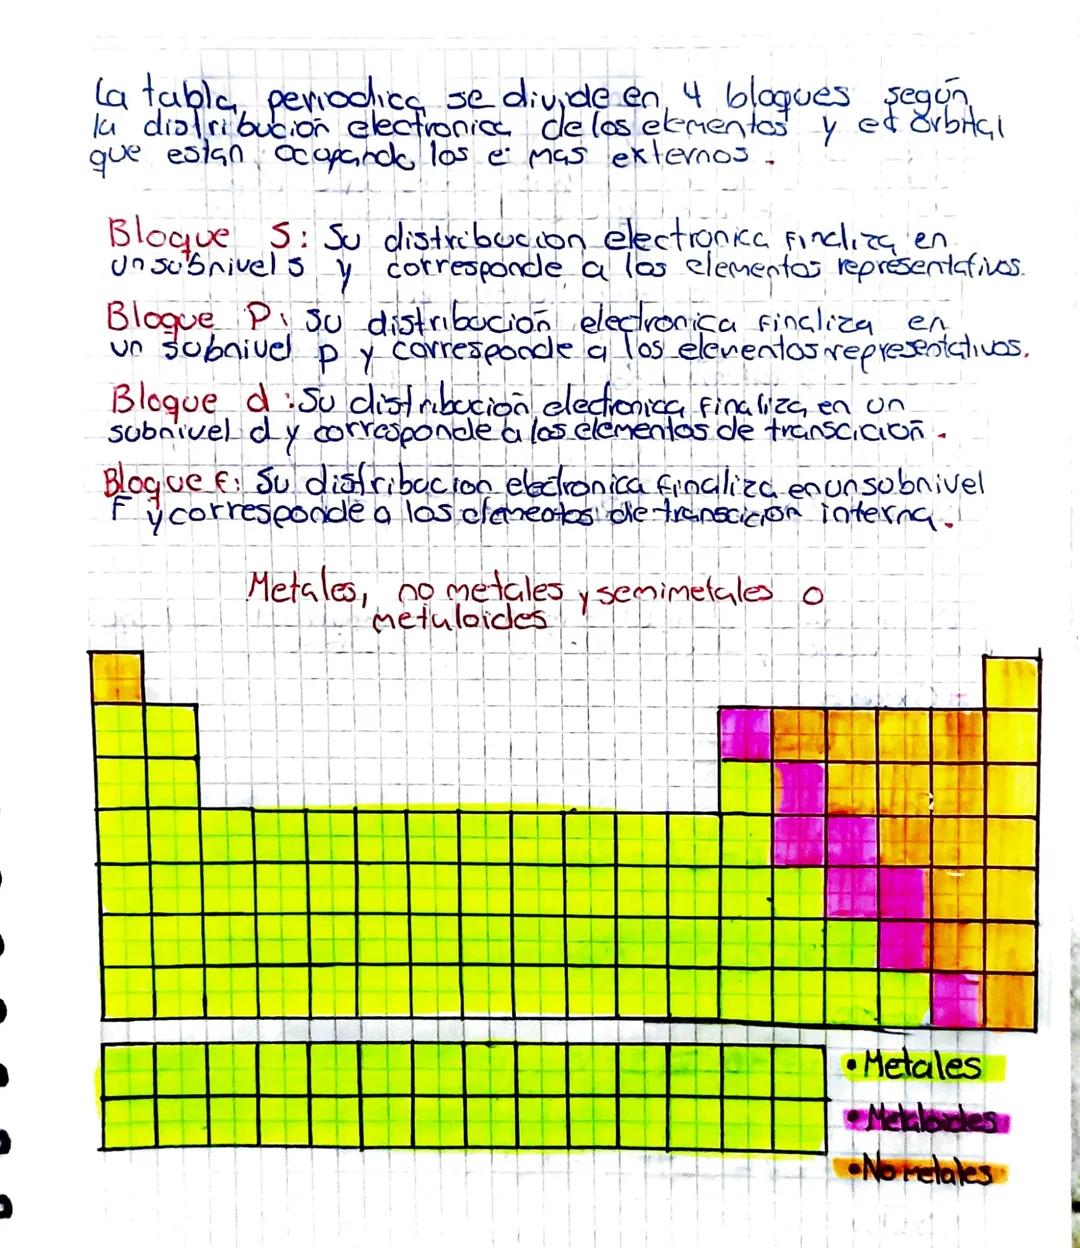 La tabla periodica se divide en 4 bloques según
la distribución electronica de los elementos y el órbital
que estan ocupando los e⁻ mas externos.
Bloque S: Su distribucion electronica Finaliza en
un subnivel s y corresponde a los elementos representativos.
Bloque P: su distribución electronica finaliza en
un subnivel p y corresponde a los elementos representativos.
Bloque d: Su distribución electronica finaliza en un
subnivel d y corresponde a los elementos de transcición.
Bloque f: Su distribucion electronica finaliza en un subnivel
F y corresponde a los elementos de transcición interna.
Metales, no metales y semimetales o
metaloides
• Metales
• Metaloides
• No metales